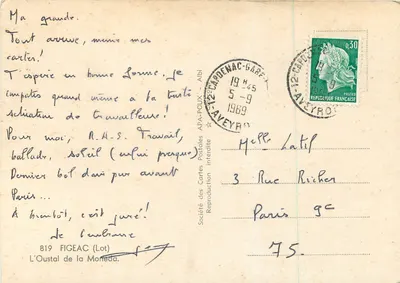 Ma grande.
Tout arrive, même mes
cartes!
T'espère en bonne forme. Je
compatis quand même à ta triste
situation de travailleur!
Pour moi, R.A.S. Travail,
ballade, soleil (enfin presque)
Dernier bol d'air pur avant
Paris...
A bientôt, c'est juré!
Je t'embrasse
819 FIGEAC (Lot)
L'Oustal de la Monéda.
Société des Cartes Postales APA-POUX - ALBI
Reproduction interdite
12-CAPDENAC-GARE
19H45
5-9
1969
AVEYRON
12-CAPDENAC-GARE
AVEYRON
0,30
REPUBLIQUE FRANÇAISE
Melle Latil
3, Rue Richer
Paris 9e
75.